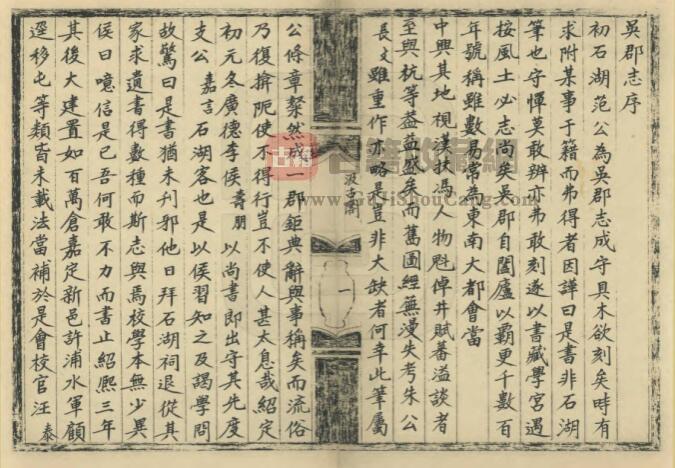 吳郡志序
初石湖范公為吳郡志成守具木欲刻矣時有
求附某事于籍而弗得者因譁曰是書非石湖
筆也守憚莫敢辨亦弗敢刻遂以書藏學宮遇
按風土必志尚矣吳郡自闔廬以霸更千數百
年號稱雖數易常為東南大都會當
中興其地視漢扶馮人物魁倬井賦蕃溢談者
至與杭等葢益盛矣而舊圖經蕪漫失考朱公
長文雖重作亦略是豈非大缺者何幸此筆屬
汲古閣
一
公條章粲然成一郡鉅典辭與事稱矣而流俗
乃復揜阨使不得行豈不使人甚太息哉紹定
初元冬廣德李侯壽朋以尚書郎出守其先度
支公嘉言石湖客也是以侯習知之及謁學問
故驚曰是書猶未刋邪他日拜石湖祠退從其
家求遺書得數種而斯志與焉校學本無少異
侯曰噫信是已吾何敢不力而書止紹熙三年
其後大建置如百萬倉嘉定新邑許浦水軍顧
逕移屯等類皆未載法當補於是會校官汪泰
古籍
古籍收藏網
www.GuJiShouCang.Com